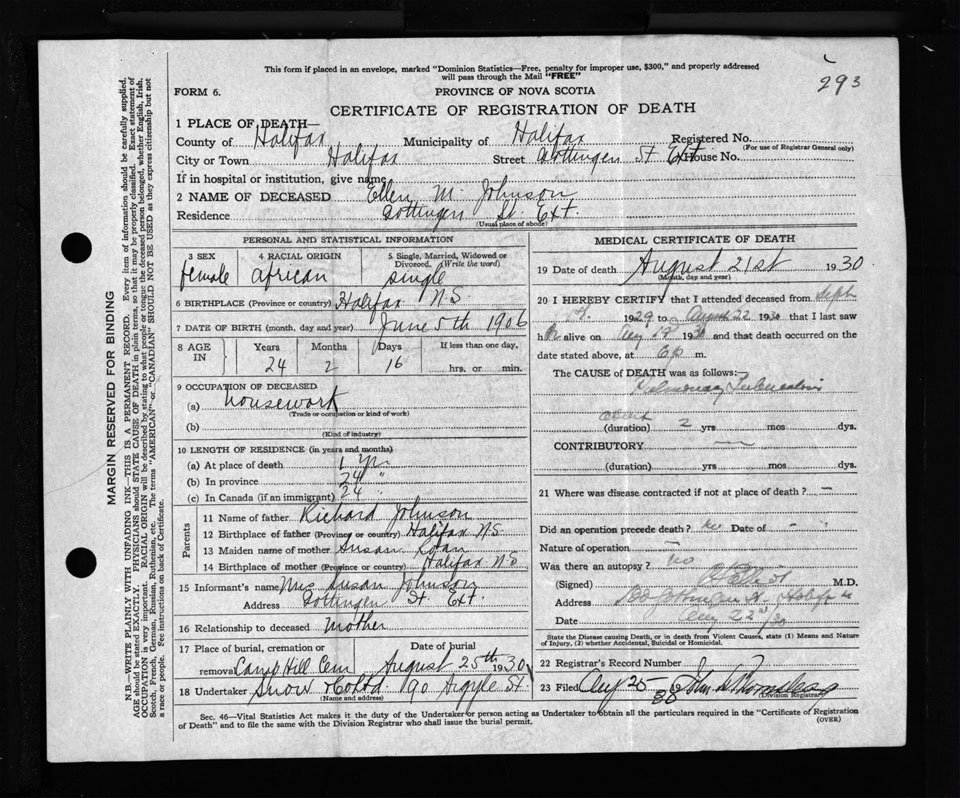 This form if placed in an envelope, marked "Dominion Statistics—Free, penalty for improper use, $300," and properly addressed
will pass through the Mail "FREE"
293
FORM 6.
PROVINCE OF NOVA SCOTIA
CERTIFICATE OF REGISTRATION OF DEATH
1 PLACE OF DEATH—
County of Halifax Municipality of Halifax Registered No.
(For use of Registrar General only)
City or Town Halifax Street Gottingen St Ext House No.
If in hospital or institution, give name
2 NAME OF DECEASED Ellen M. Johnson
Residence Gottingen St. Ext
(Usual place of abode)
PERSONAL AND STATISTICAL INFORMATION
3 SEX 4 RACIAL ORIGIN 5 Single, Married, Widowed or
Divorced. (Write the word)
female african single
6 BIRTHPLACE (Province or country) Halifax N.S.
7 DATE OF BIRTH (month, day and year) June 5th 1906
8 AGE IN Years Months Days If less than one day.
24 2 16 hrs. or min.
9 OCCUPATION OF DECEASED
(a) housework
(Trade or occupation or kind of work)
(b)
(Kind of industry)
10 LENGTH OF RESIDENCE (in years and months)
(a) At place of death 1 yr
(b) In province 24 "
(c) In Canada (if an immigrant) 24 "
Parents
11 Name of father Richard Johnson
12 Birthplace of father (Province or country) Halifax N.S
13 Maiden name of mother Susan
14 Birthplace of mother (Province or country) Halifax N.S
15 Informant's name Mrs Susan Johnson
Address Gottingen St. Ext.
16 Relationship to deceased mother
17 Place of burial, cremation or Date of burial
removal Camp Hill Cem August 25th 1930
18 Undertaker Snow & Co Ltd 90 Argyle St.
(Name and address)
MEDICAL CERTIFICATE OF DEATH
19 Date of death August 21st 1930
(Month, day and year)
20 I HEREBY CERTIFY that I attended deceased from Sept
1929 to August 22 1930 that I last saw
her alive on Aug 19 1930 and that death occurred on
date stated above, at 6 P m.
The CAUSE OF DEATH was as follows:
Pulmonary Tuberculosis
about
(duration) 2 yrs mos dys.
CONTRIBUTORY —
(duration) yrs mos dys.
21 Where was disease contracted if not at place of death? —
Did an operation precede death? no Date of -
Nature of operation —
Was there an autopsy? no
(Signed) M.D.
Address Gottingen St. Halifax
Date Aug 22nd/30
State the Disease causing Death, or in death from Violent Causes, state (1) Means and Nature
of Injury, (2) whether Accidental, Suicidal or Homicidal.
22 Registrar's Record Number
23 Filed Aug 25 John
(Division Registrar)
Sec. 46—Vital Statistics Act makes it the duty of the Undertaker or person acting as Undertaker to obtain all the particulars required in the "Certificate of Registration
of Death" and to file the same with the Division Registrar who shall issue the burial permit.
(OVER)
MARGIN RESERVED FOR BINDING
N.B.—WRITE PLAINLY WITH UNFADING INK—THIS IS A PERMANENT RECORD. Every item of information should be carefully supplied.
AGE should be stated EXACTLY. PHYSICIANS should STATE CAUSE OF DEATH in plain terms, so that it may be properly classified. Exact statement of
OCCUPATION is very important. RACIAL ORIGIN will be described by stating to what people or tongue the deceased person belonged, whether English, Irish,
Scotch, French, German, Russian, Ruthenian, etc. The terms "AMERICAN" or "CANADIAN" SHOULD NOT BE USED as they express citizenship but not
a race or people. Fee instructions on back of Certificate.